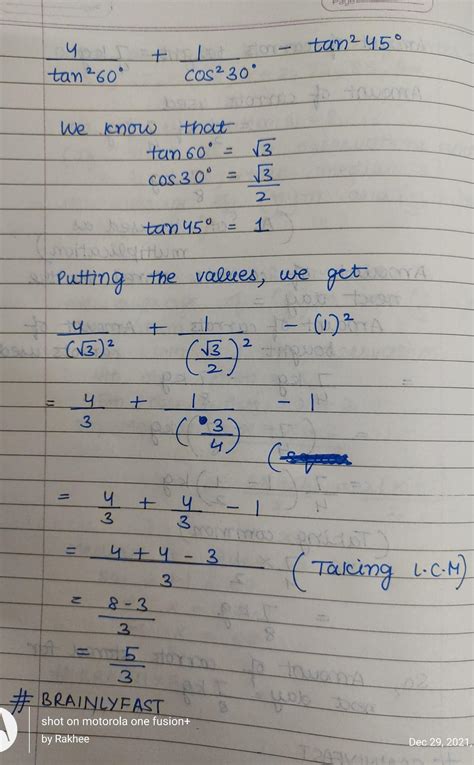 4/tan²60° + 1/cos²30° - tan²45°
We know that
tan60° = √3
cos30° = √3/2
tan45° = 1
Putting the values, we get
4/(√3)² + 1/(√3/2)² - (1)²
= 4/3 + 1/(3/4) - 1
= 4/3 + 4/3 - 1
= 4+4-3/3 (Taking L.C.M)
= 8-3/3
= 5/3
# BRAINLYFAST
shot on motorola one fusion+
by Rakhee
Dec 29, 2021,